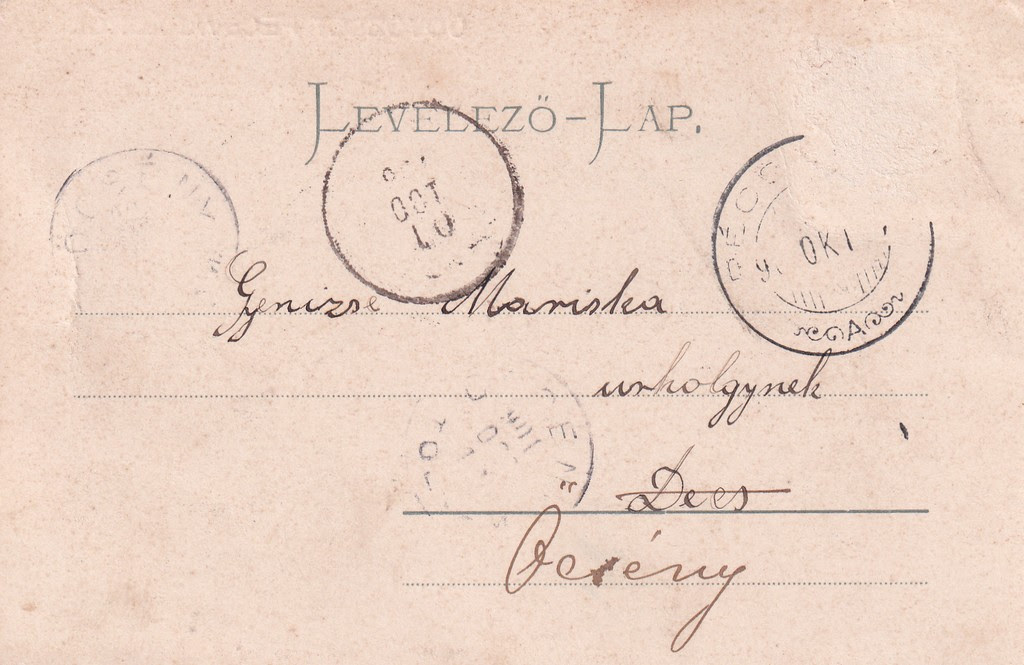 LEVELEZŐ-LAP.
OCT
10
OKT
A
Genizse Mariska
urhölgynek
Decs
Öcsény